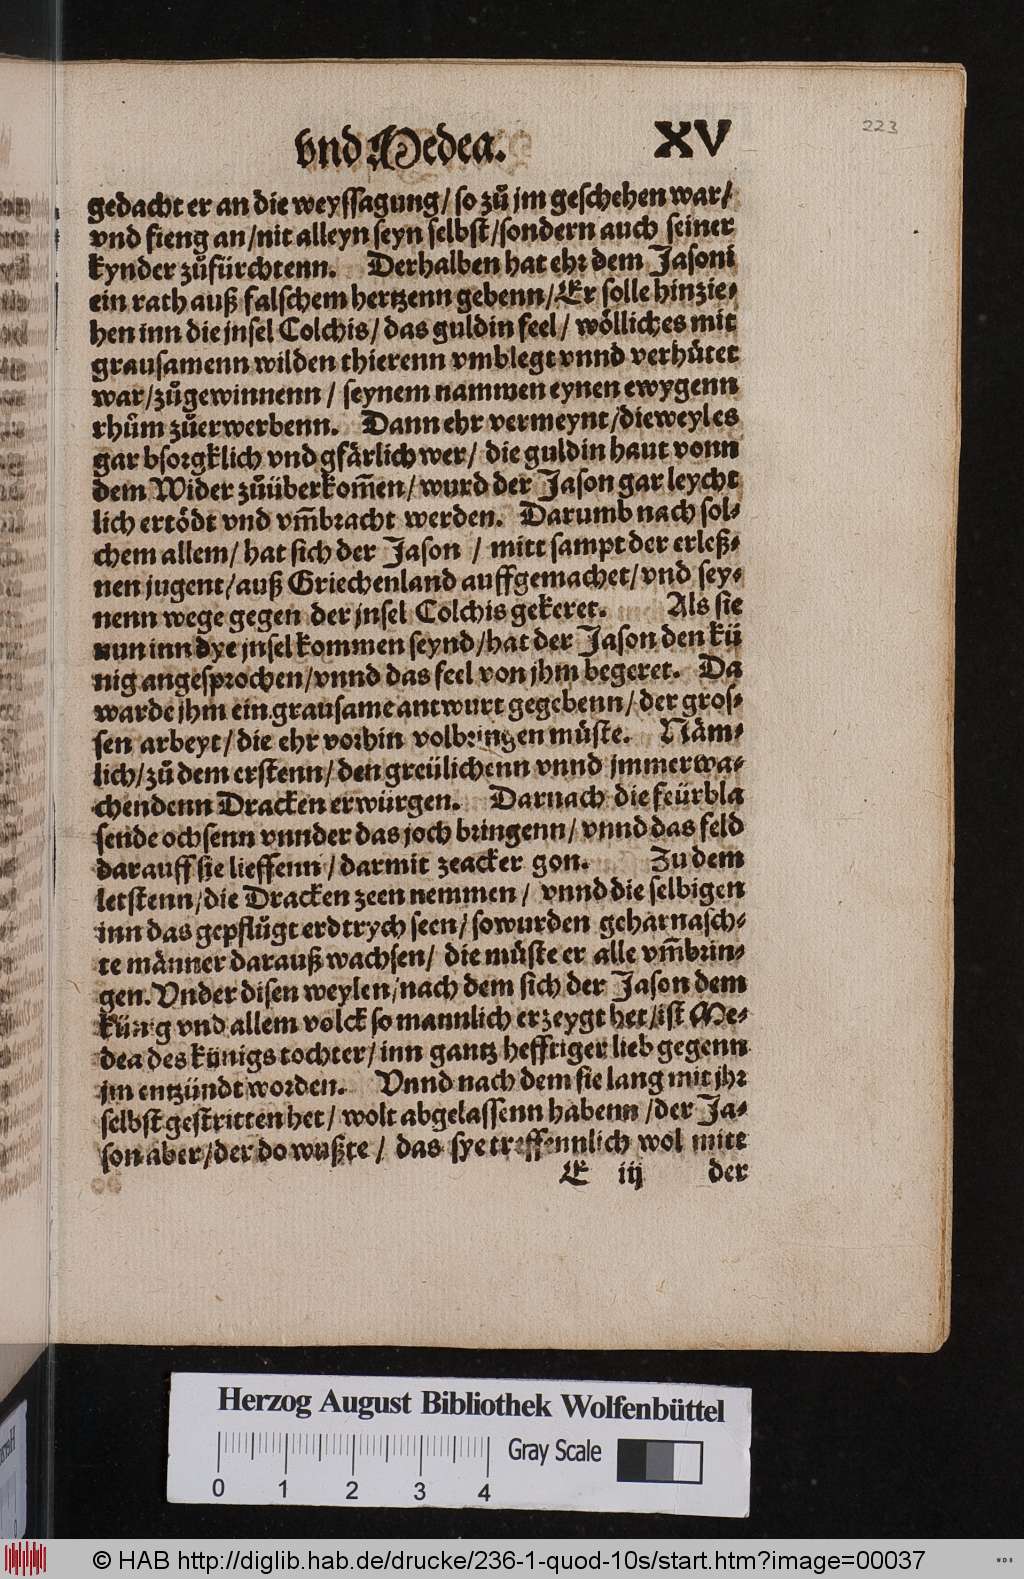 vnd Medea. XV
223
gedacht er an die weyssagung/ so zuͦ jm geschehen war/
vnd fieng an/nit alleyn seyn selbst/sondern auch seiner
kynder zuͦfürchtenn. Derhalben hat ehr dem Jasoni
ein rath auß falschem hertzenn gebenn/Er solle hinzie-
hen inn die jnsel Colchis/ das guldin feel/ wölliches mit
grausamenn wilden thierenn vmblegt vnnd verhütet
war/zuͦgewinnenn / seynem nammen eynen ewygenn
rhuͦm zuͦerwerbenn. Dann ehr vermeynt/dieweyl es
gar bsorgklich vnd gfärlich wer/ die guldin haut vonn
dem Wider zuͦüberkom̃en/ wurd der Jason gar leycht
lich ertödt vnd vm̃bracht werden. Darumb nach sol-
chem allem/ hat sich der Jason / mitt sampt der erleß-
nen jugent/auß Griechenland auffgemachet/vnd sey-
nenn wege gegen der jnsel Colchis gekeret. Als sie
nun inn dye jnsel kommen seynd/hat der Jason den kü
nig angesprochen/vnnd das feel von jhm begeret. Da
warde jhm ein grausame antwurt gegebenn/ der gros-
sen arbeyt/ die ehr vorhin volbringen müste. Näm-
lich/zuͦ dem erstenn/den greülichenn vnnd jmmerwa-
chendenn Dracken erwürgen. Darnach die feürbla
sende ochsenn vnnder das joch bringenn/ vnnd das feld
darauff sie lieffenn/darmit zeacker gon. Zu dem
letstenn/die Dracken zeen nemmen/ vnnd die selbigen
inn das gepflügt erdtrych seen/ so wurden geharnasch-
te männer darauß wachsen/ die müste er alle vm̃brin-
gen. Vnder disen weylen/nach dem sich der Jason dem
künig vnd allem volck so mannlich erzeygt het/ist Me-
dea des künigs tochter/inn gantz hefftiger lieb gegenn
jm entzündt worden. Vnnd nach dem sie lang mit jhr
selbst gestritten het/ wolt abgelassenn habenn /der Ja-
son aber/der do wußte/ das sye treffennlich wol mitt
E iij der
Herzog August Bibliothek Wolfenbüttel
0 1 2 3 4 Gray Scale
© HAB http://diglib.hab.de/drucke/236-1-quod-10s/start.htm?image=00037